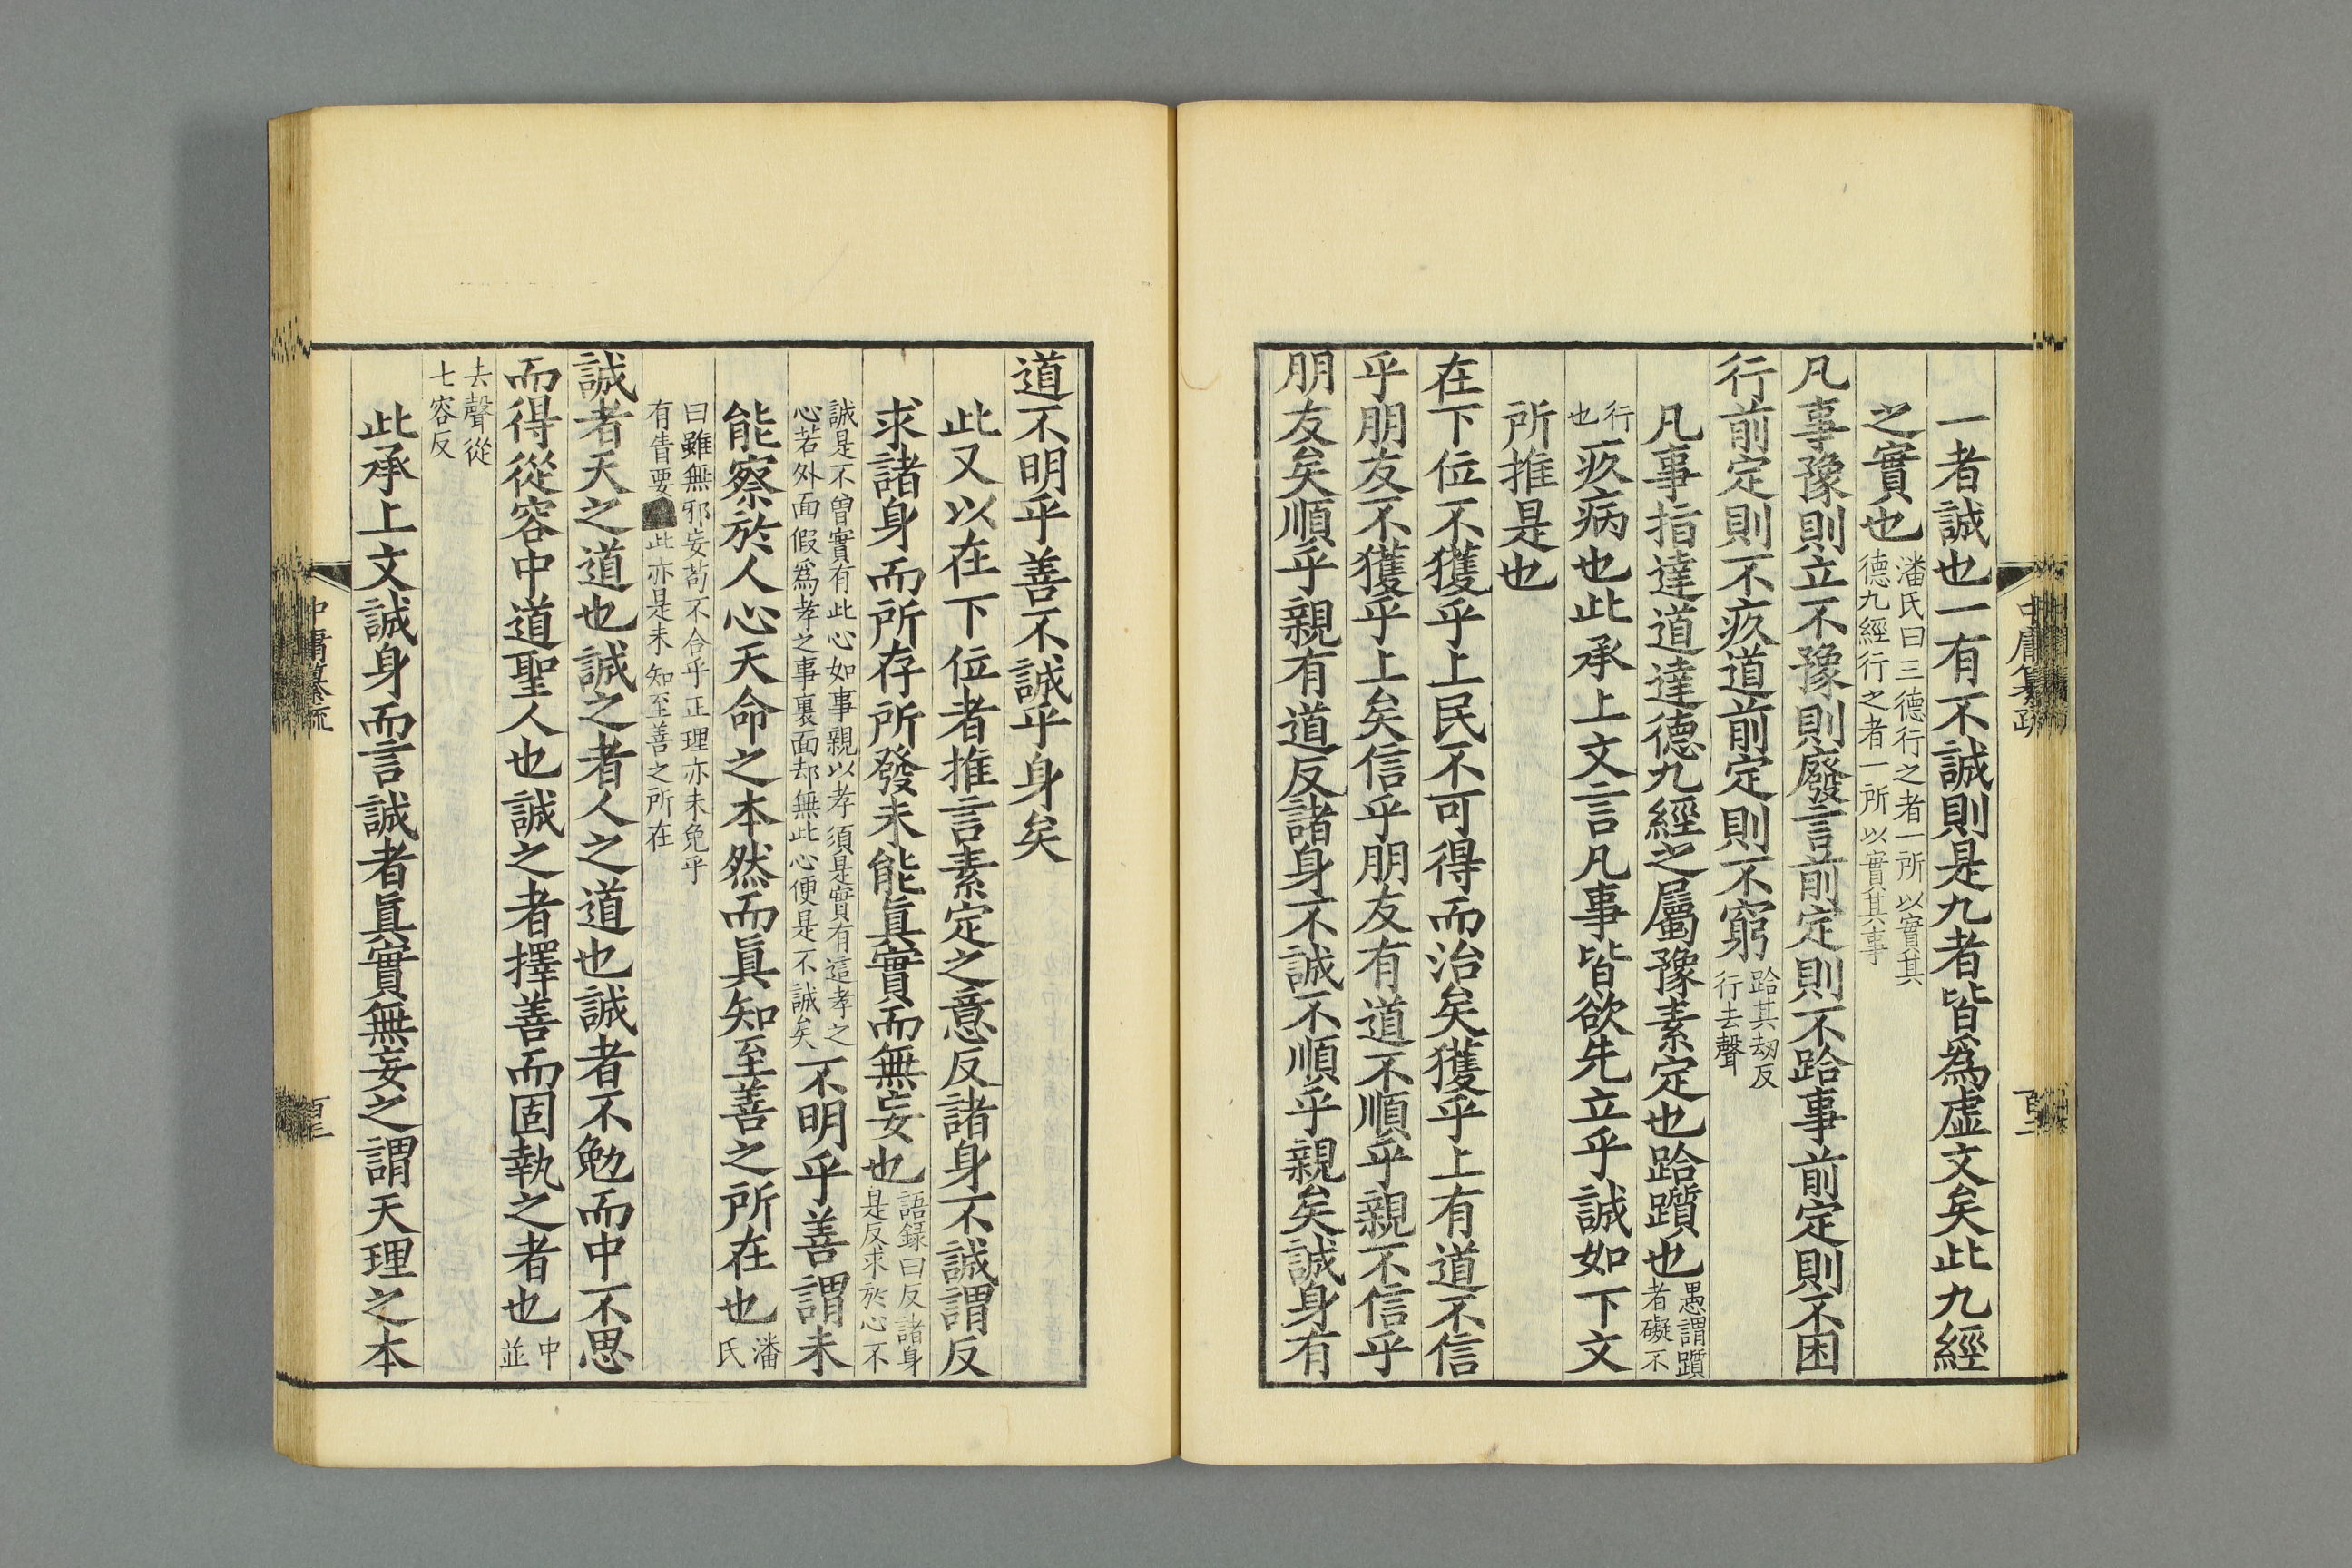 一者誠也一有不誠則是九者皆爲虛文矣此九經
之實也潘氏曰三德行之者一所以實其
德九經行之者一所以實其事
凡事豫則立不豫則廢言前定則不跲事前定則不困
行前定則不疚道前定則不窮跲其劫反
行去聲
凡事指達道達德九經之屬豫素定也跲躓也愚謂躓
者礙不
行
也疚病也此承上文言凡事皆欲先立乎誠如下文
所推是也
在下位不獲乎上民不可得而治矣獲乎上有道不信
乎朋友不獲乎上矣信乎朋友有道不順乎親不信乎
朋友矣順乎親有道反諸身不誠不順乎親矣誠身有
中庸纂疏
道不明乎善不誠乎身矣
此又以在下位者推言素定之意反諸身不誠謂反
求諸身而所存所發未能眞實而無妄也語録曰反諸身
是反求於心不
誠是不曾實有此心如事親以孝須是實有這孝之
心若外面假爲孝之事裏面却無此心便是不誠矣不明乎善謂未
能察於人心天命之本然而眞知至善之所在也潘
氏
曰雖無邪妄苟不合乎正理亦未免乎
有眚要此亦是未知至善之所在
誠者天之道也誠之者人之道也誠者不勉而中不思
而得從容中道聖人也誠之者擇善而固執之者也中
並
去聲從
七容反
此承上文誠身而言誠者眞實無妄之謂天理之本
中庸纂疏